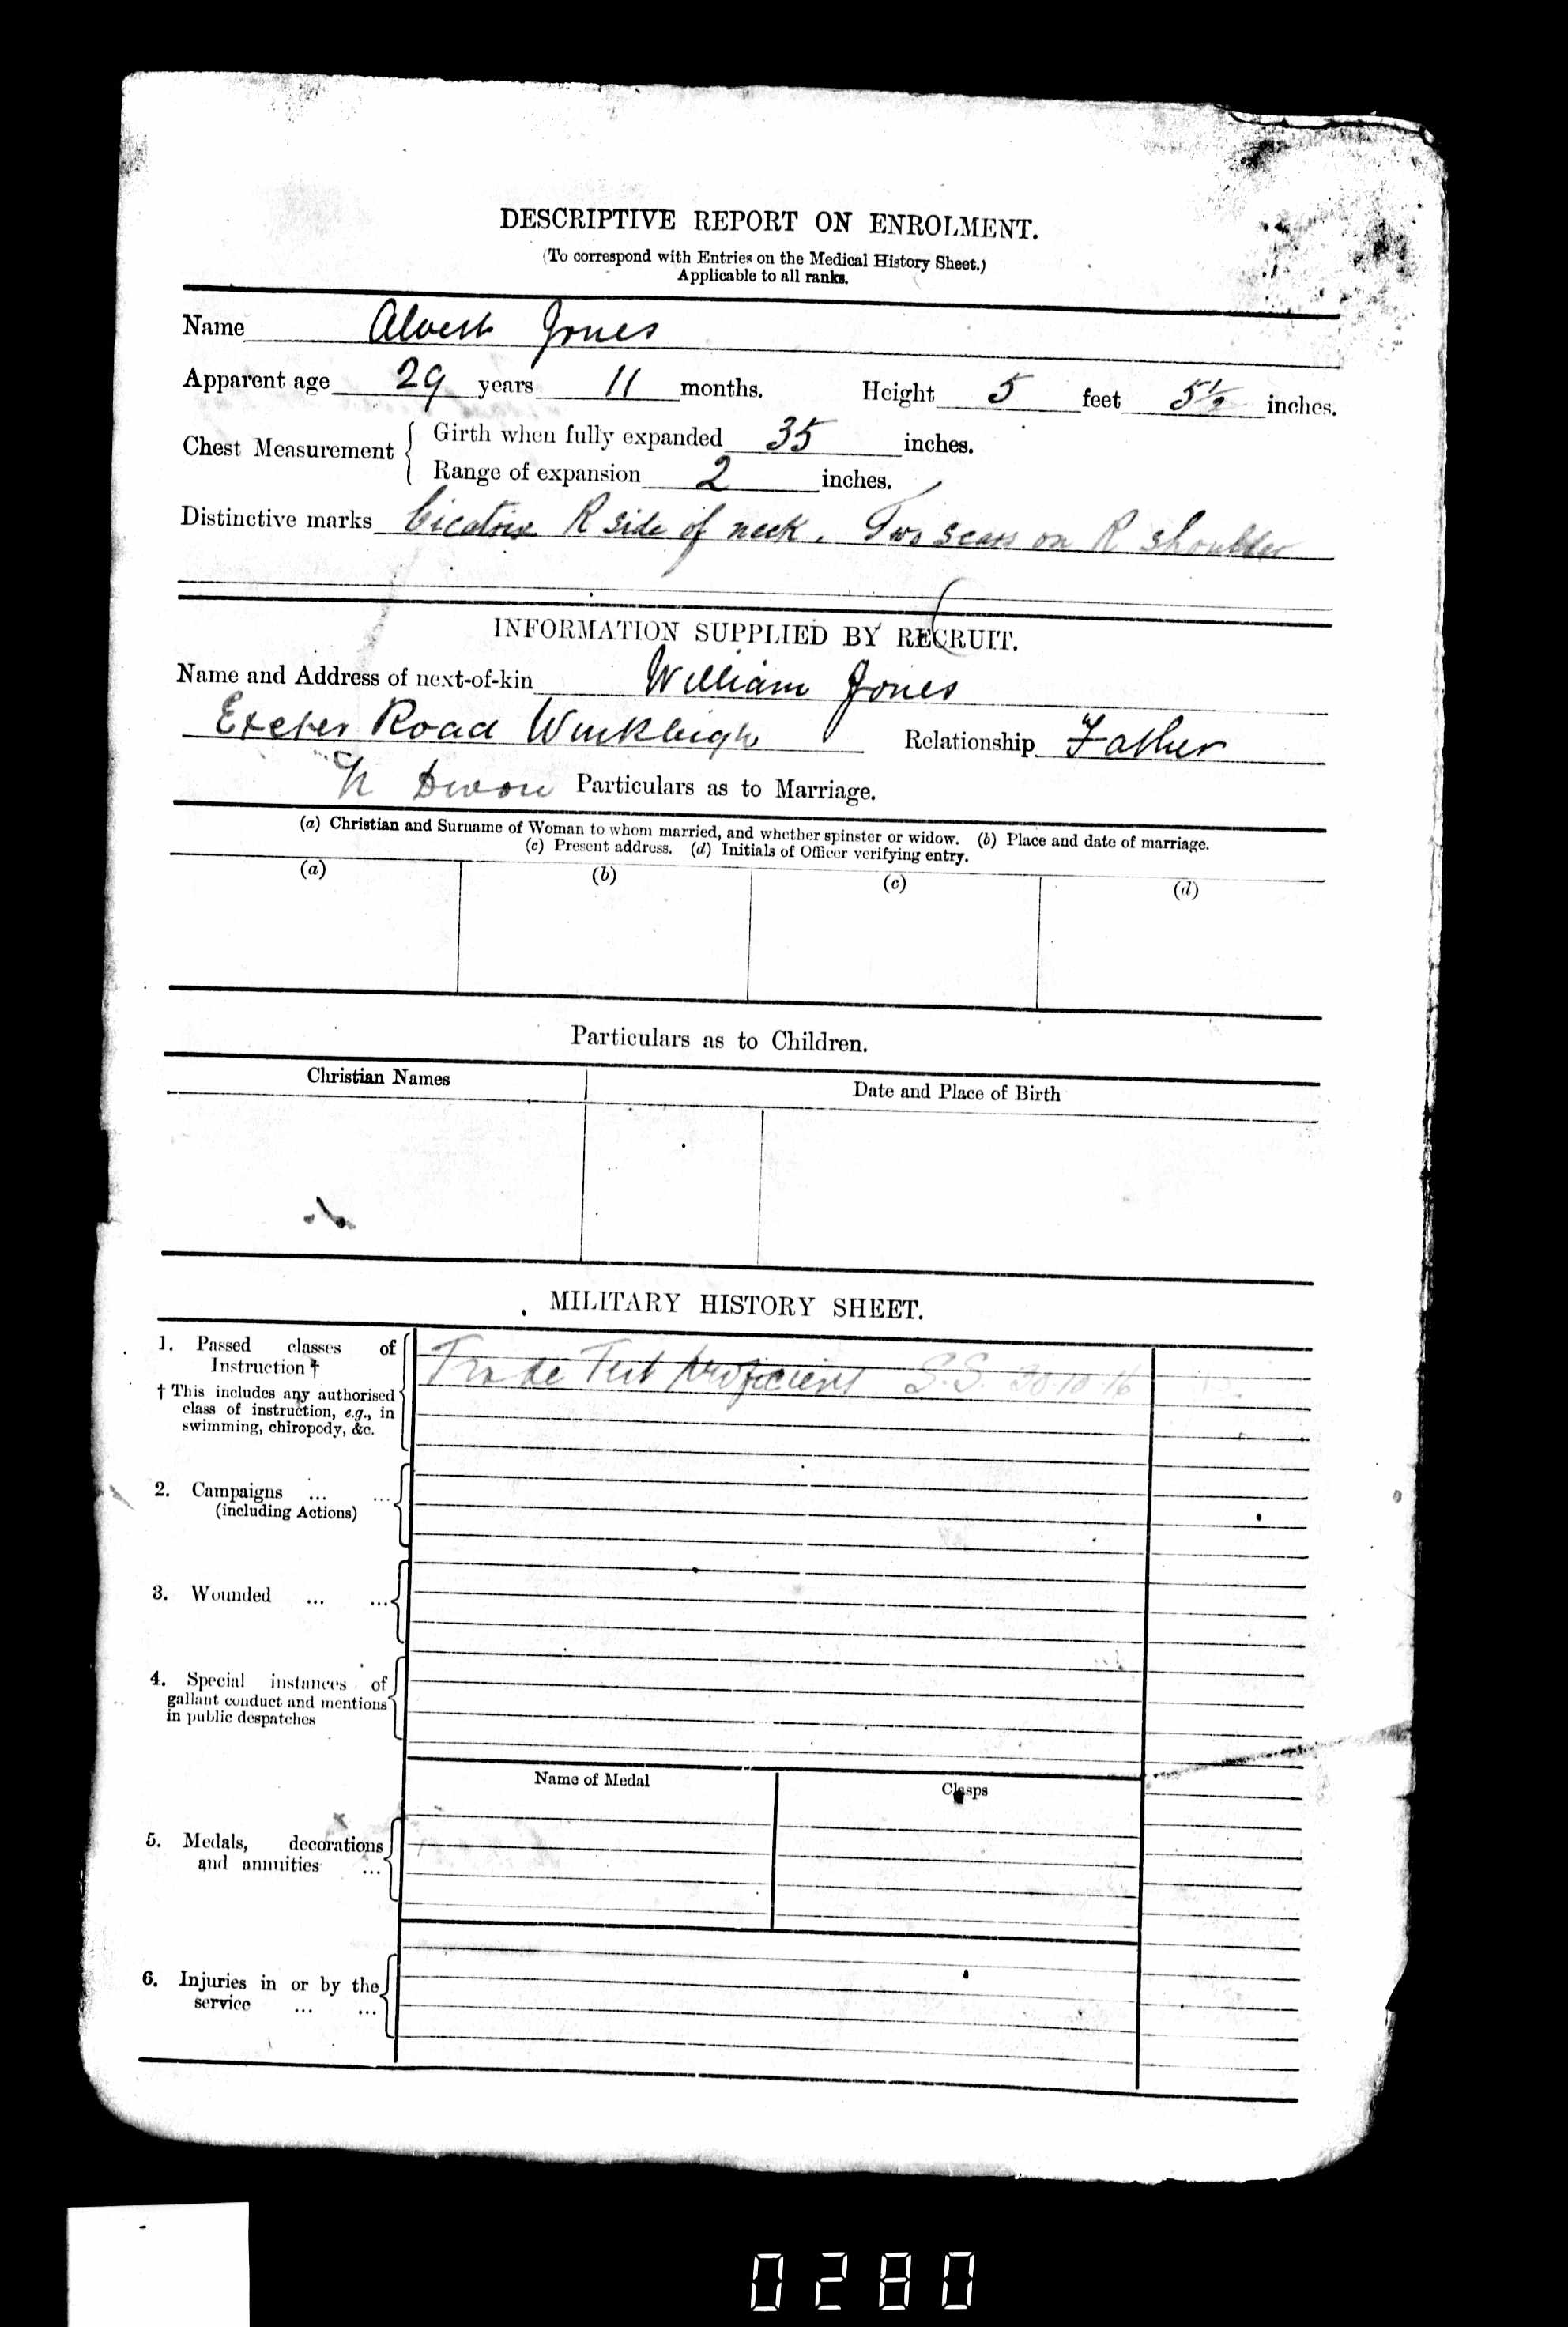 DESCRIPTIVE REPORT ON ENROLMENT.
(To correspond with Entries on the Medical History Sheet.)
Applicable to all ranks.
Name Albert Jones
Apparent age 29 years 11 months. Height 5 feet 5½ inches.
Chest Measurement { Girth when fully expanded 35 inches.
Range of expansion 2 inches.
Distinctive marks Cicatrix R side of neck. Two scars on R shoulder
INFORMATION SUPPLIED BY RECRUIT.
Name and Address of next-of-kin William Jones
Exeter Road Winkleigh Relationship Father
N Devon Particulars as to Marriage.
(a) Christian and Surname of Woman to whom married, and whether spinster or widow. (b) Place and date of marriage.
(c) Present address. (d) Initials of Officer verifying entry.
(a) (b) (c) (d)
Particulars as to Children.
Christian Names Date and Place of Birth
MILITARY HISTORY SHEET.
1. Passed classes of
Instruction †
Trade Test Proficient S.S. 30 10 16
† This includes any authorised
class of instruction, e.g., in
swimming, chiropody, &c.
2. Campaigns ... ...
(including Actions)
3. Wounded ... ...
4. Special instances of
gallant conduct and mentions
in public despatches
Name of Medal Clasps
5. Medals, decorations
and annuities ...
6. Injuries in or by the
service ... ...
0280